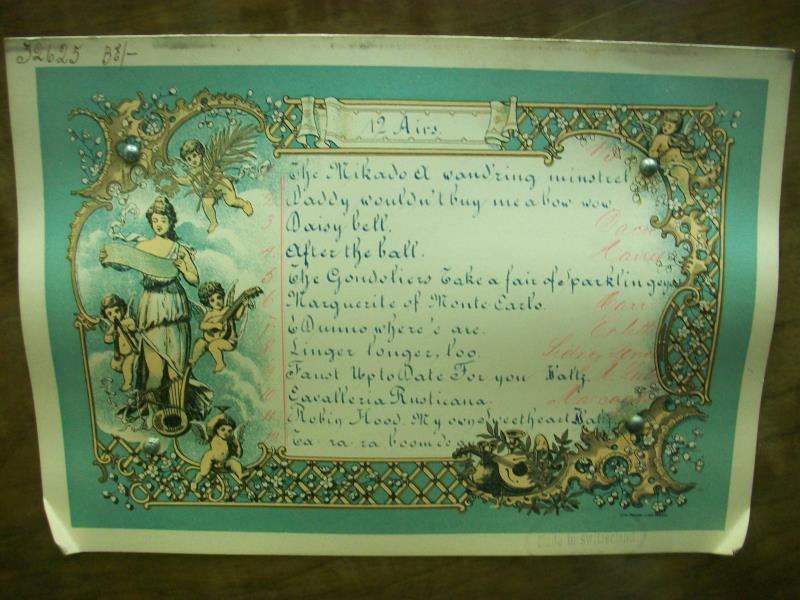 32625
12 Airs.
The Mikado A wand'ring minstrel
2. Daddy wouldn't buy me a bow wow.
3 Daisy bell.
4. After the ball.
5 The Gondoliers Take a pair of Sparkling eyes
6 Marguerite of Monte Carlo.
7 E Dunno where 'e are.
8 Linger longer, loo. Sidney
9 Faust Up to Date For you Waltz
10 Cavalleria Rusticana. Mascagni
11 Robin Hood My own Sweetheart Waltz
12 Ta. ra. ra boom de
Made in Switzerland.